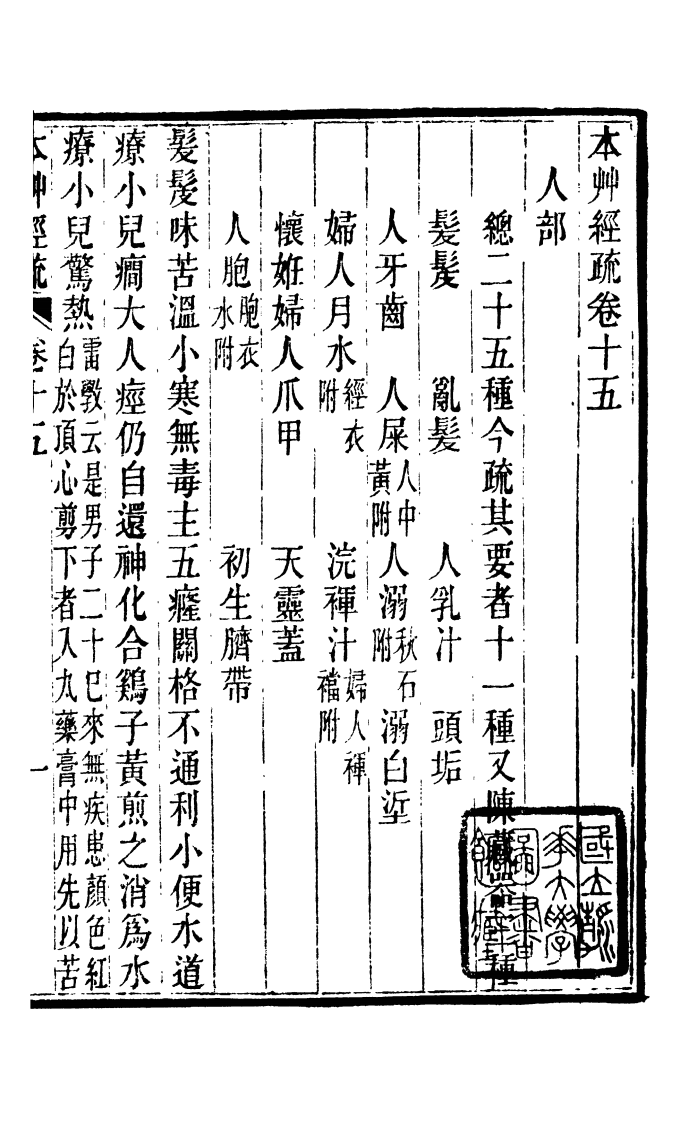 本艸經疏卷十五
人部
總二十五種今疏其要者十一種又陳藏器 種
髮髲 亂髮 人乳汁 頭垢
人牙齒 人屎人中黃附 人溺秋石附 溺白垽
婦人月水經衣附 浣褌汁婦人褌襠附
懷妊婦人爪甲 天靈蓋
人胞胞衣水附 初生臍帶
髮髲味苦溫小寒無毒主五癃關格不通利小便水道
療小兒癎大人痓仍自還神化合鷄子黃煎之消爲水
療小兒驚熱雷斆云是男子二十巳來無疾患顏色紅白於頂心剪下者入丸藥膏中用先以苦
本艸經疏 卷十五 一
國立清華大學圖書館藏